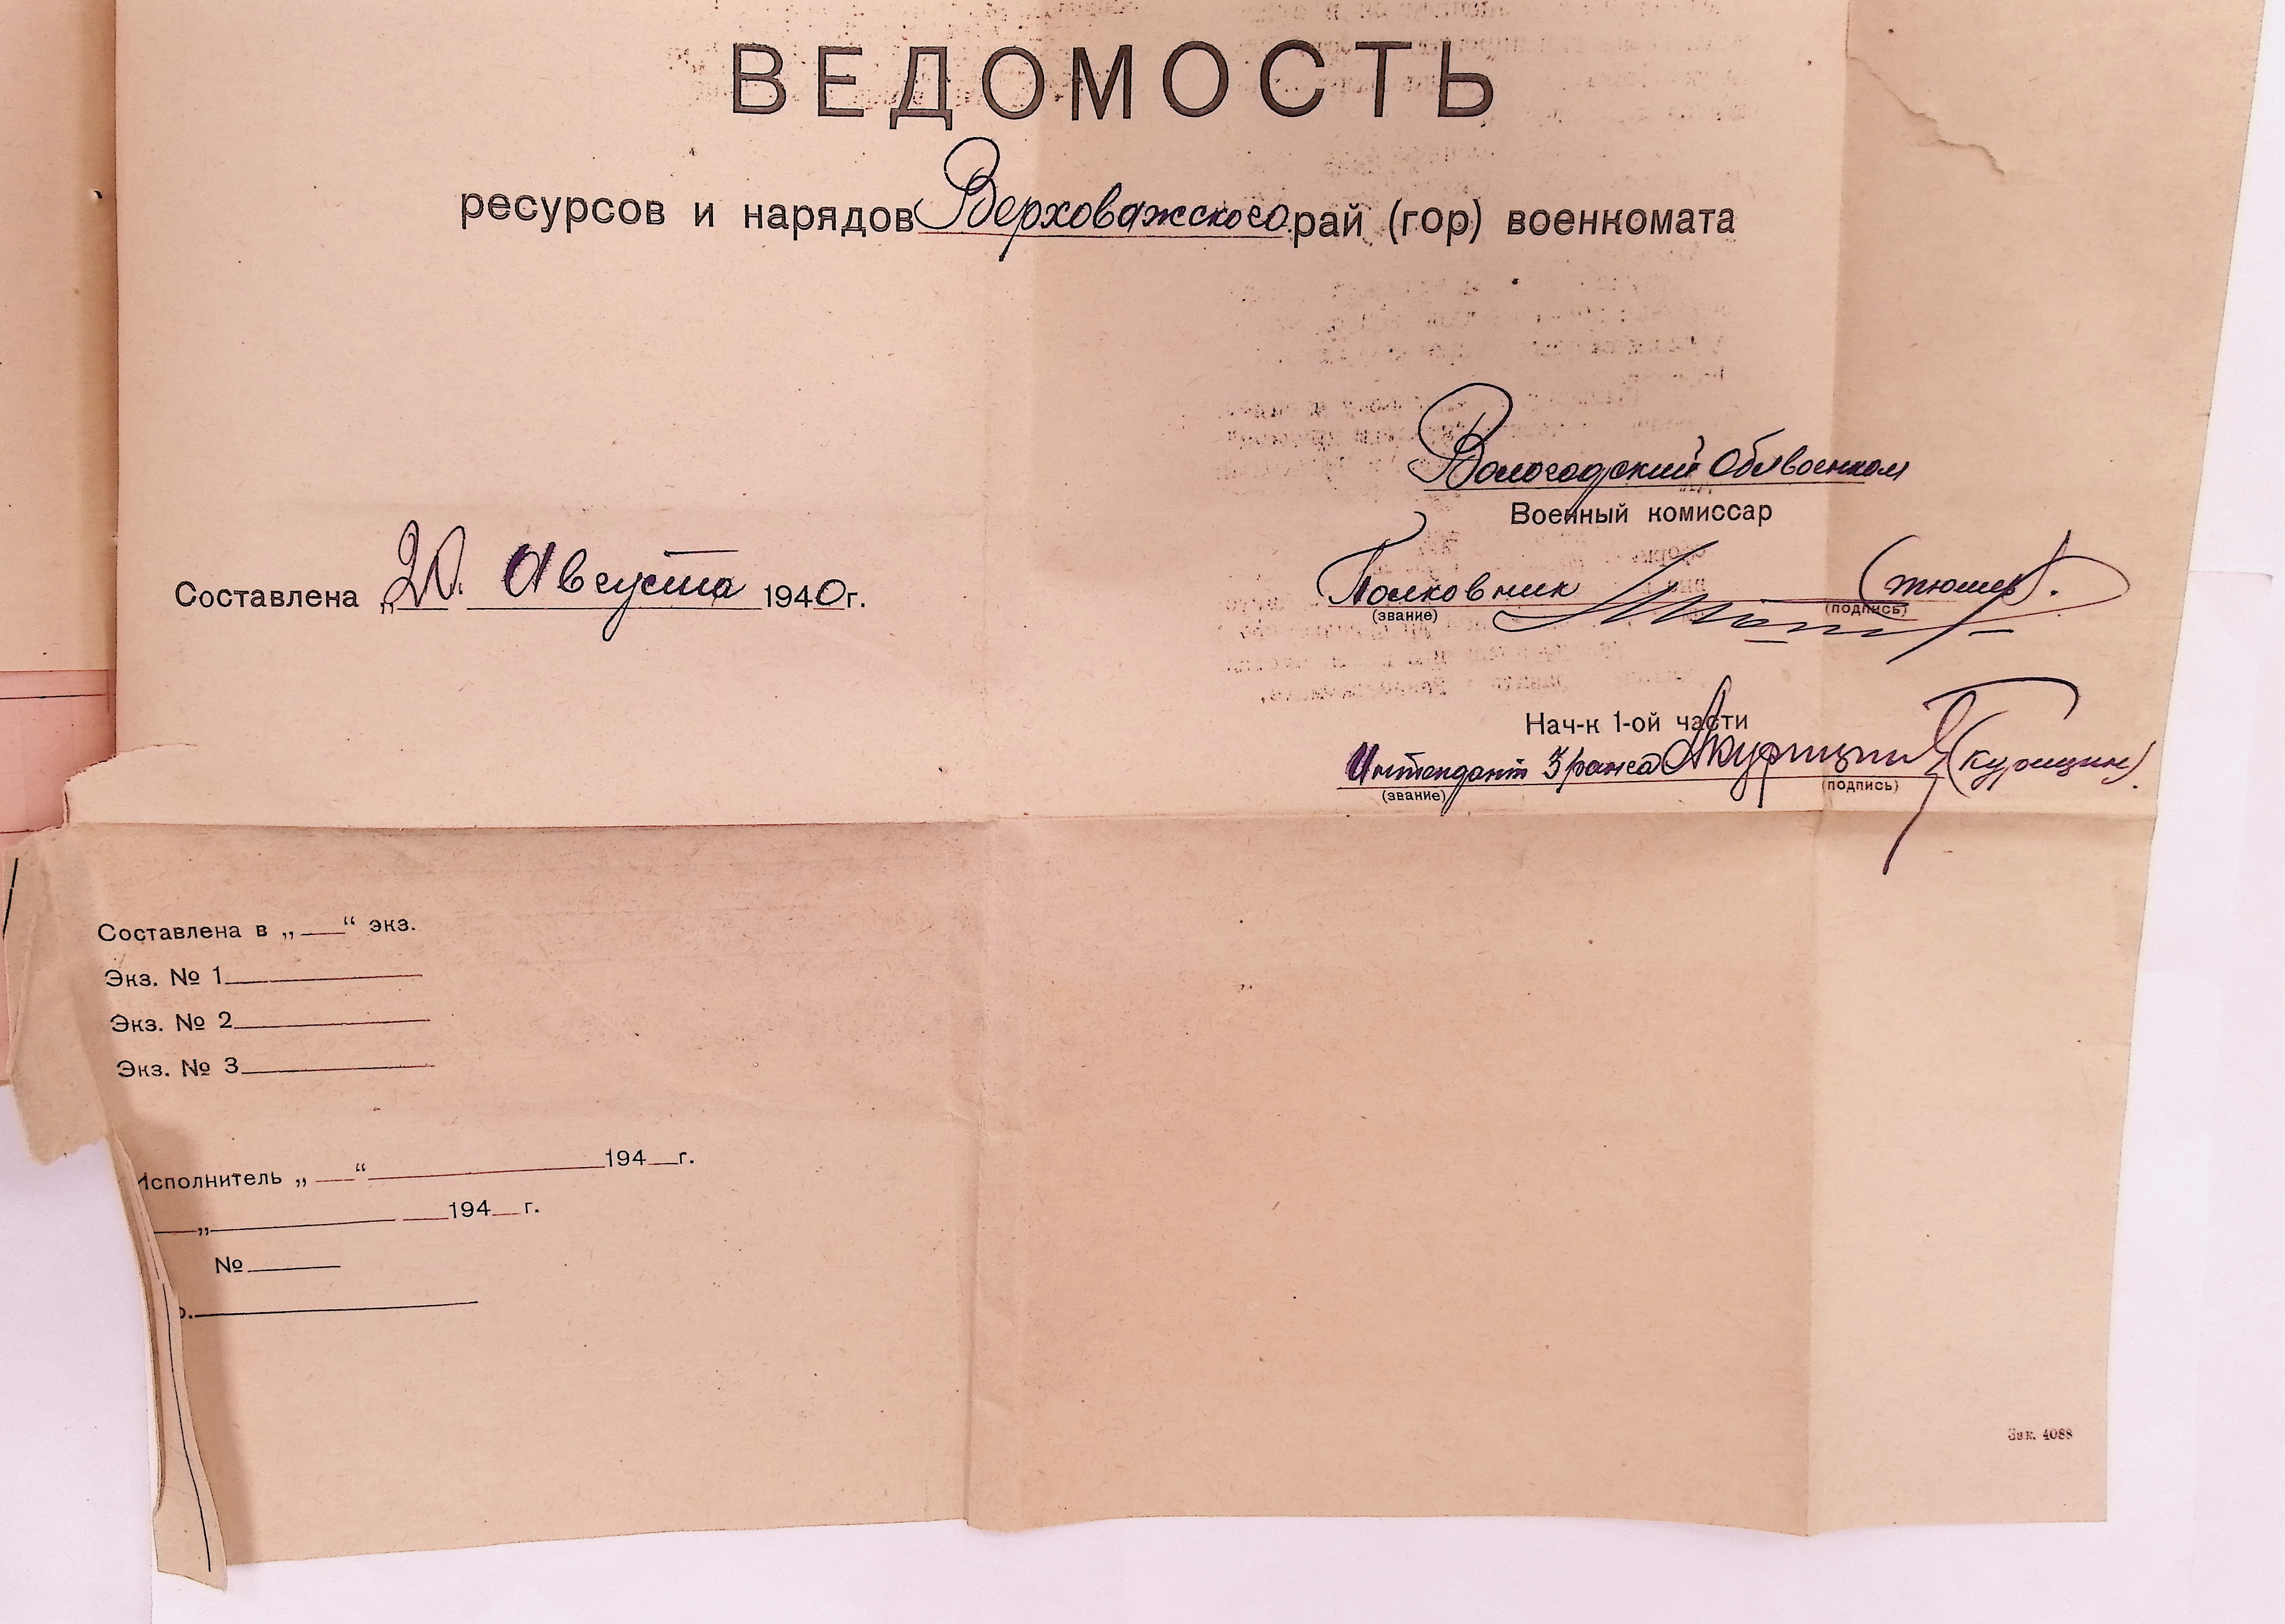 ВЕДОМОСТЬ
ресурсов и нарядов Верховажского рай (гор) военкомата
Вологодский Облвоенком
Военный комиссар
Составлена „20. Августа 1940г.
Полковник (Тюшев).
(звание) (подпись)
Нач-к 1-ой части
Интендант 3 ранга Акурицин (Курицин)
(звание) (подпись)
Составлена в „___“ экз.
Экз. № 1
Экз. № 2
Экз. № 3
Исполнитель „___“ 194__г.
„ 194__г.
№
Зак. 4088